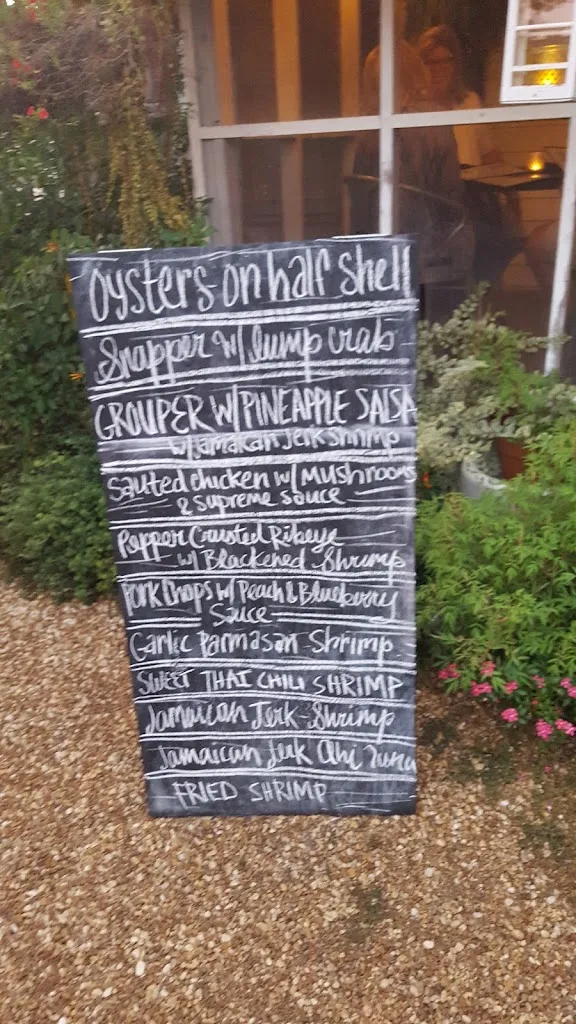 Oysters on half shell
Snapper w/ lump crab
GROUPER W/ PINEAPPLE SALSA
w/ Jamaican Jerk Shrimp
Sauted chicken w/ Mushrooms
& supreme sauce
Pepper Crusted Ribeye
w/ Blackened Shrimp
Pork Chops w/ Peach & Blueberry
Sauce
Garlic Parmasan Shrimp
SWEET THAI CHILI SHRIMP
Jamaican Jerk Shrimp
Jamaican Jerk Ahi Tuna
FRIED SHRIMP